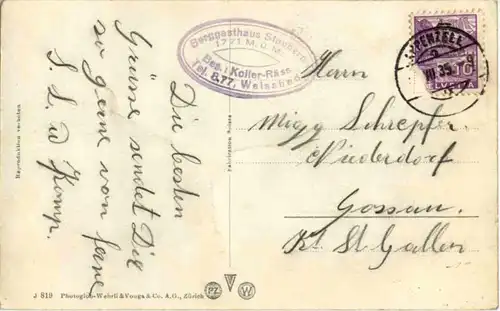 Berggasthaus Staubern
1771 M.ü.M.
Bes. J. Koller-Räss
Tel. 8.77, Weissbad
APPENZELL
VII 35
10
HELVETIA
Die besten
Grüsse sendet Dir
so gerne von ferne
S. L. u Komp.
Herrn
Migg Schrepfer
Niederdorf
Gossau.
Kt. St. Gallen
Reproduktion verboten
J 819 Photoglob-Wehrli & Vouga & Co. A.G., Zürich
PZ
V
W